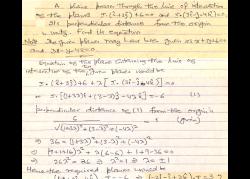 A plane passes through the line of intersection
of the planes r.(i+3j)+6=0 and r.(3i-j-4k)=0.
It's perpendicular distance from the origin
is unity. Find its equation
Note The given planes may have been given as x+3y+6=0
and 3x-y-4z=0.
Equation of the plane containing the line of
intersection of the given planes would be
r.(i+3j)+6+λ[r.(3i-j-4k)]=0
r.[(1+3λ)i+(3-λ)j-4λk]=-6 (1)
perpendicular distance of (1) from the origin is
6 / √(1+3λ)²+(3-λ)²+(-4λ)² =
⇒ 36=(1+3λ)²+(3-λ)²+(-4λ)²
26λ²=26
Hence the required planes would be